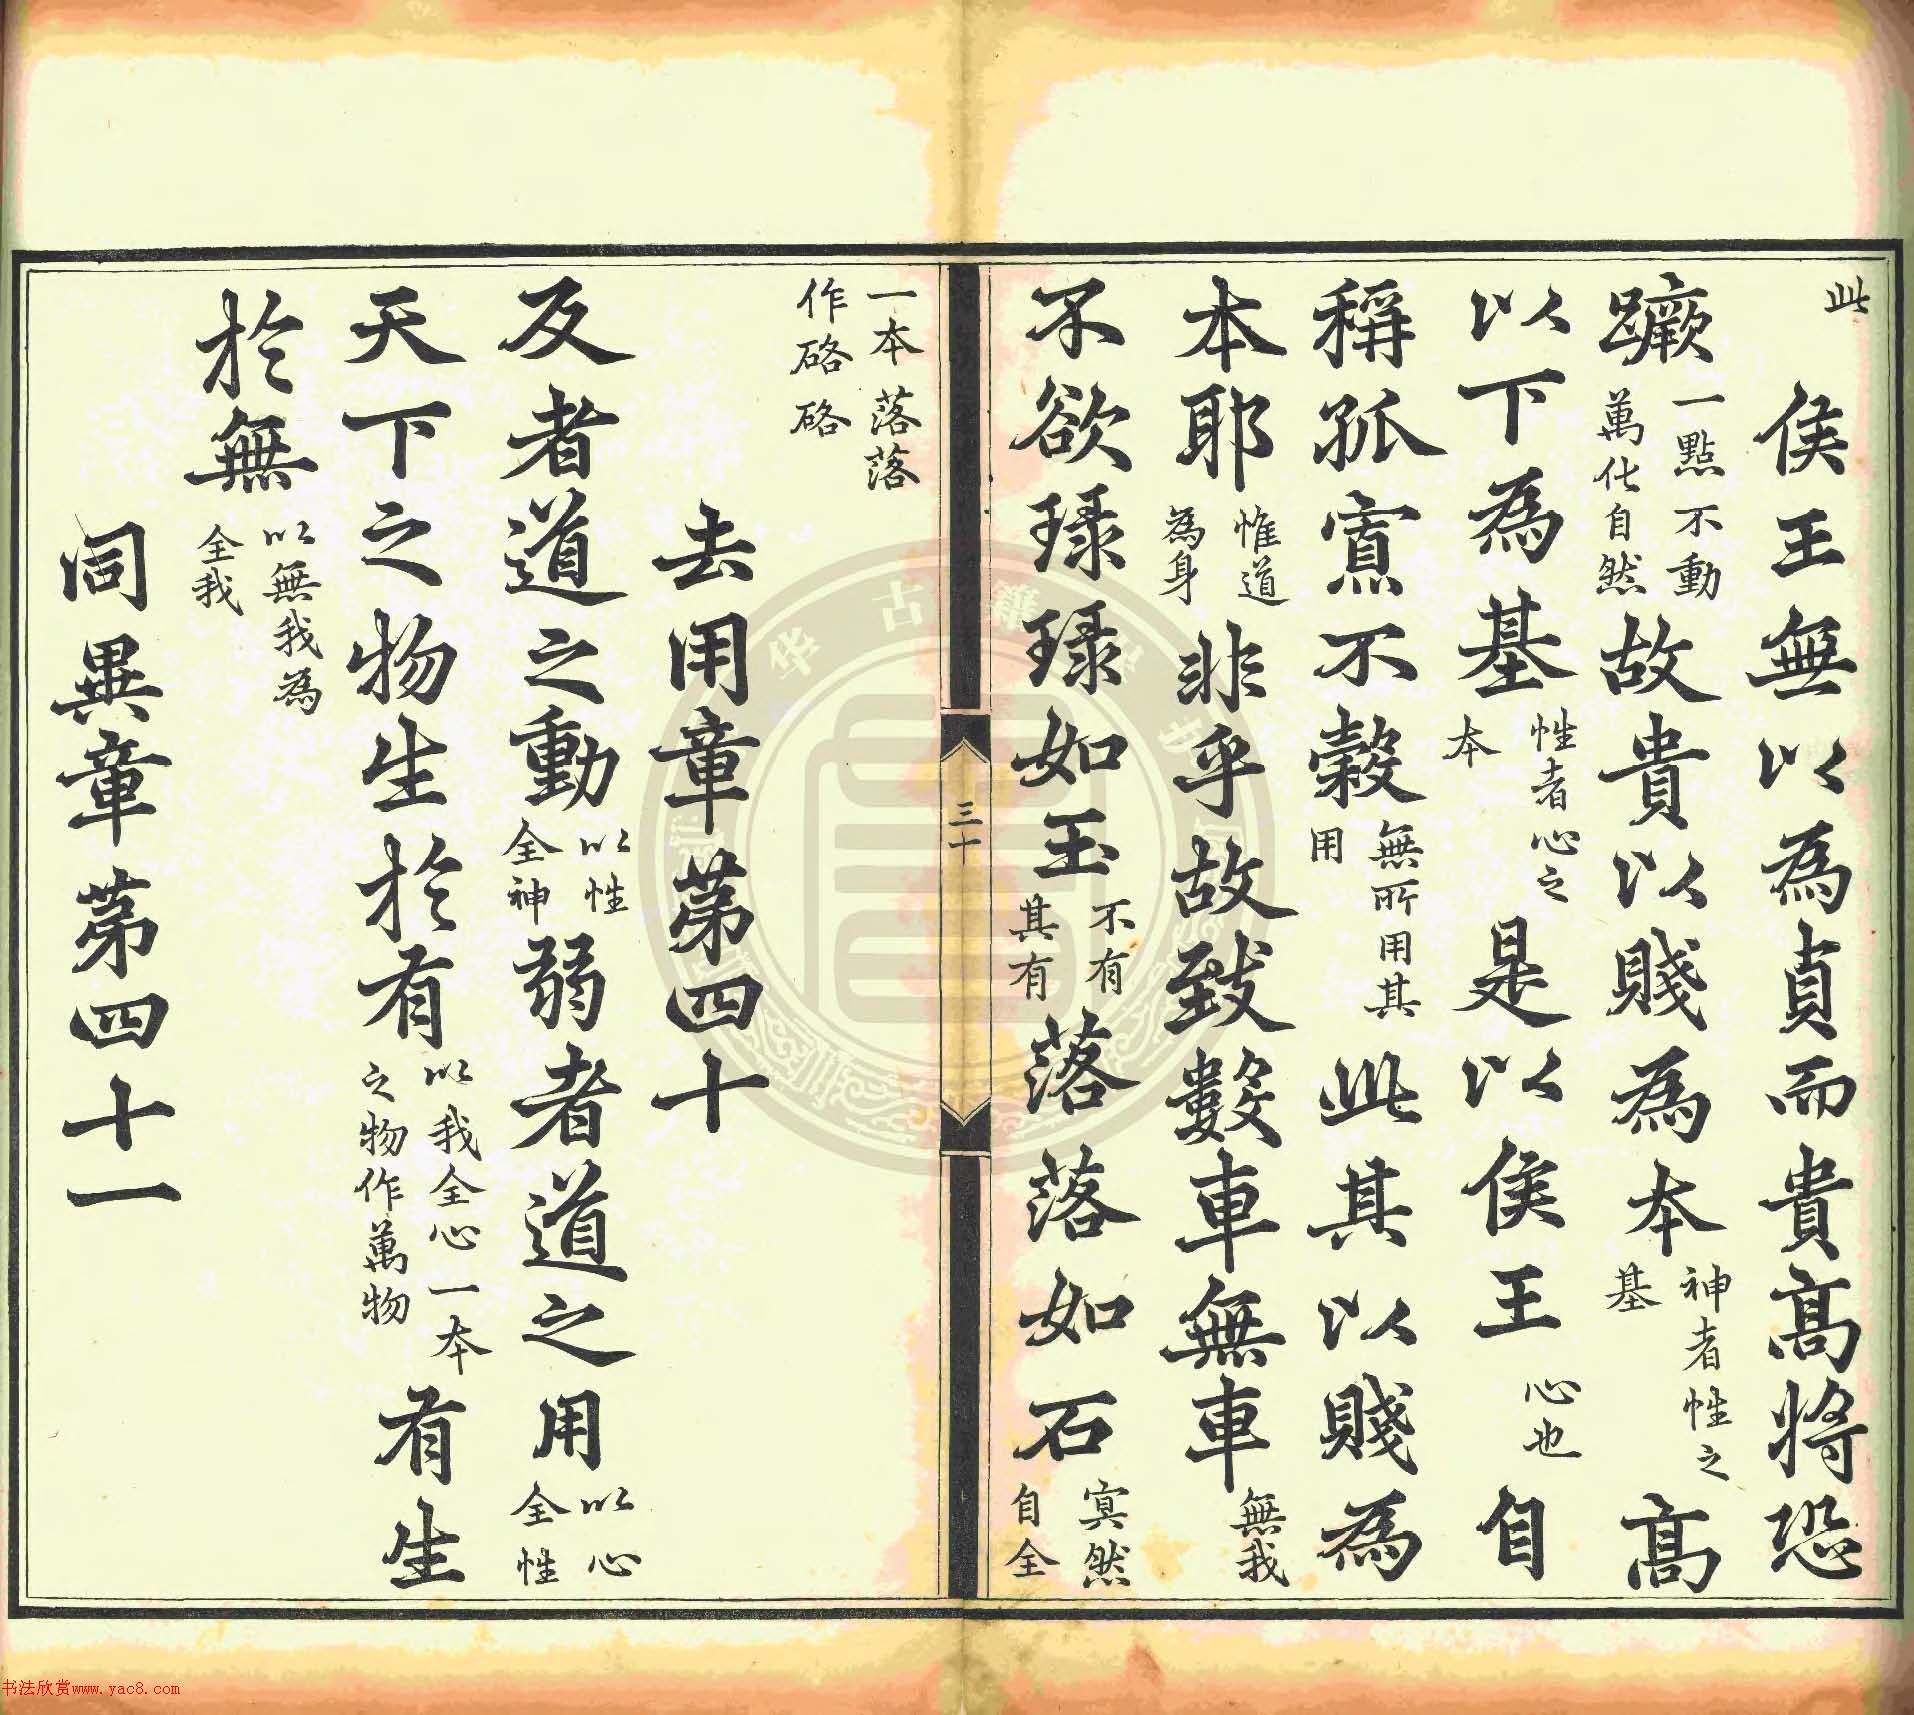 此侯王無以為貞而貴高將恐
蹶一點不動萬化自然故貴以賤為本神者性之基高
以下為基性者心之本是以侯王心也自
稱孤寡不穀無所用其用此其以賤為
本耶惟道為身非乎故致數車無車無我
不欲琭琭如玉不有其有落落如石冥然自全
三十
一本落落作硌硌
去用章第四十
反者道之動以性全神弱者道之用以心全性
天下之物生於有以我全心一本之物作萬物有生
於無以無我為全我
同異章第四十一
书法欣赏www.yac8.com